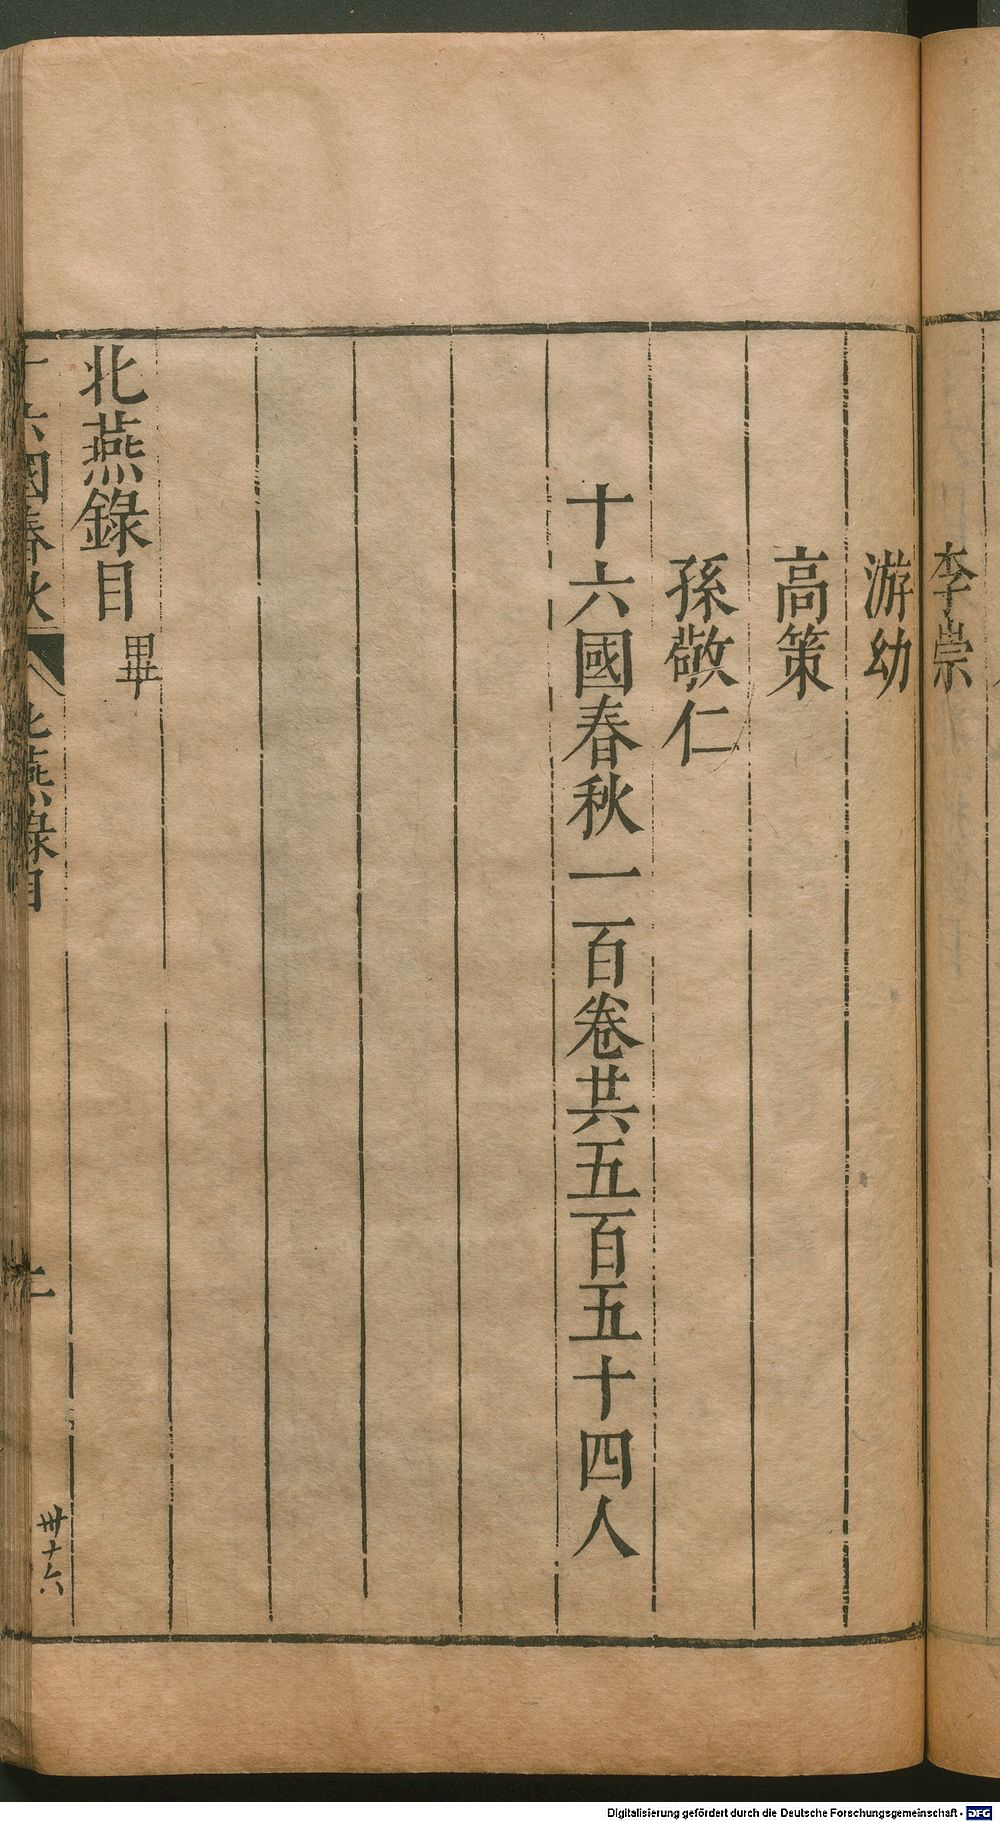 李崇
游幼
高策
孫敬仁
十六國春秋一百卷共五百五十四人
北燕錄目畢
十六國春秋 北燕錄目 二
卅十六
Digitalisierung gefördert durch die Deutsche Forschungsgemeinschaft - DFG